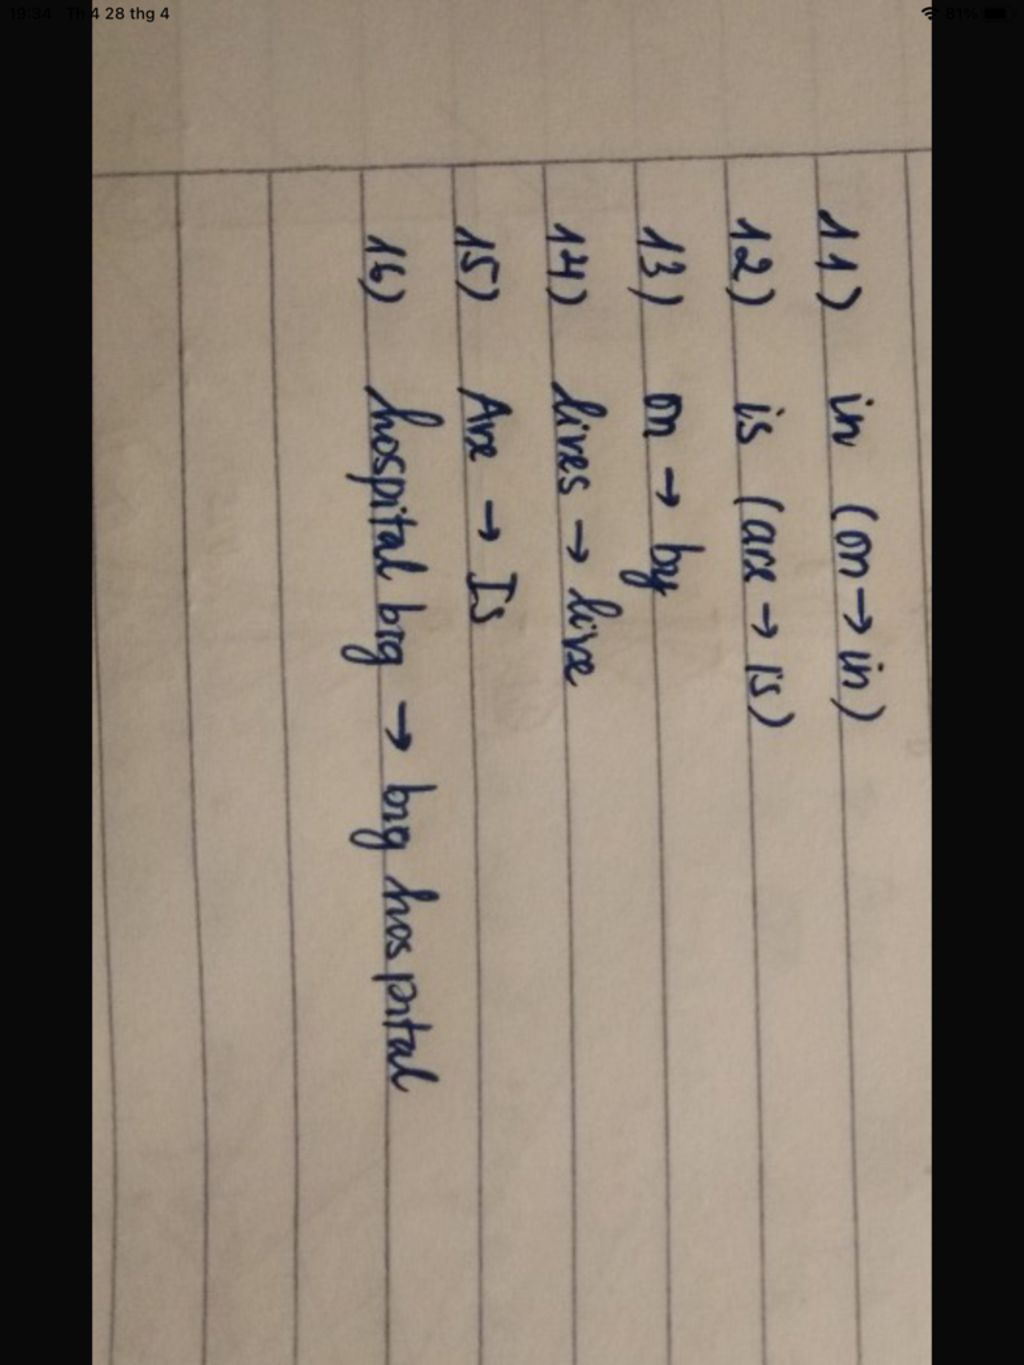 19:34 Th 4 28 thg 4
81%
11) in (on → in)
12) is (are → is)
13) on → by
14) lives → live
15) Are → Is
16) hospital big → big hospital